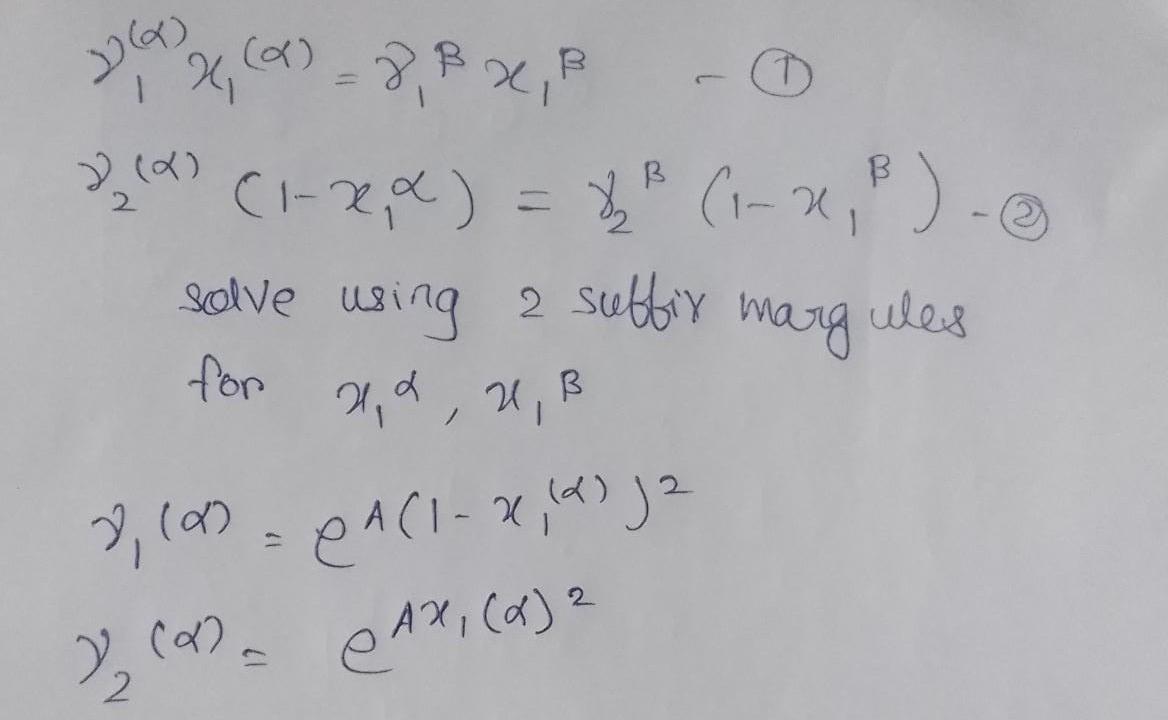 γ₁^(α) x₁^(α) = γ₁^β x₁^β - ①
γ₂^(α) (1-x₁^α) = γ₂^β (1-x₁^β) - ②
solve using 2 suffix margules
for x₁^α, x₁^β
γ₁^(α) = e^A(1-x₁^(α))^2
γ₂^(α) = e^Ax₁(α)^2